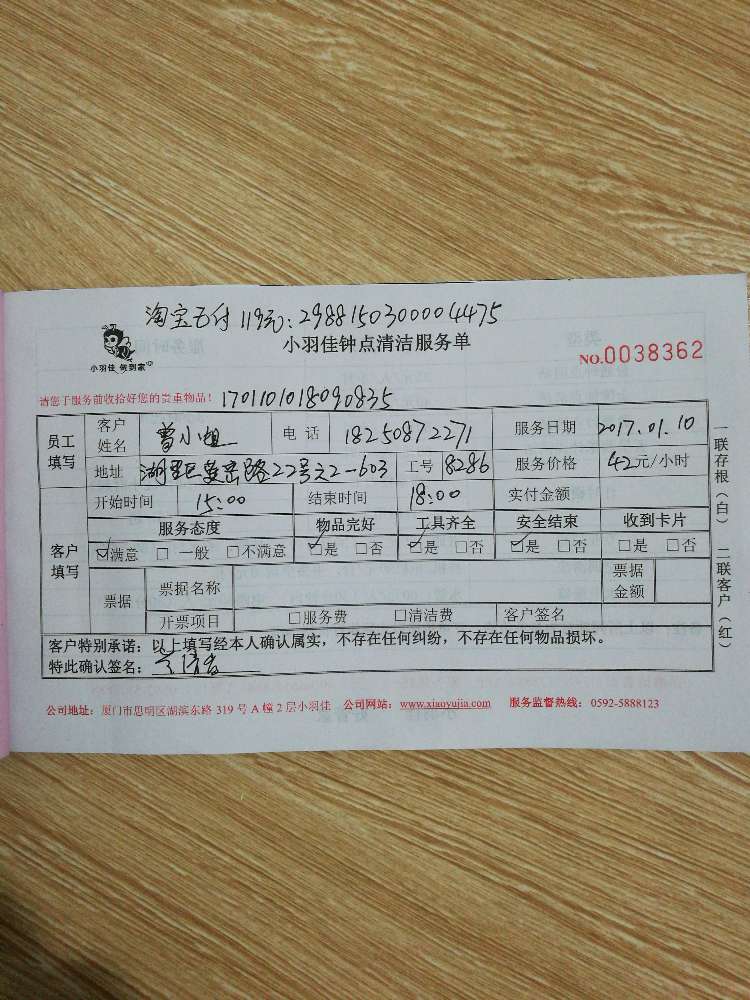 淘宝支付119元:2988150300004475
小羽佳钟点清洁服务单
小羽佳 候到家®
NO.0038362
请您于服务前收拾好您的贵重物品! 1701101018090835
员工填写 客户姓名 曹小姐 电话 18250872271 服务日期 2017.01.10
地址 湖里区 路22号之2-603 工号 8286 服务价格 42元/小时
客户填写 开始时间 15:00 结束时间 18:00 实付金额
服务态度 物品完好 工具齐全 安全结束 收到卡片
☑满意 □一般 □不满意 ☑是 □否 ☑是 □否 ☑是 □否 □是 □否
票据 票据名称 票据金额
开票项目 □服务费 □清洁费 客户签名
客户特别承诺:以上填写经本人确认属实,不存在任何纠纷,不存在任何物品损坏。
特此确认签名:
一联存根(白) 二联客户(红)
公司地址:厦门市思明区湖滨东路 319 号 A 幢 2 层小羽佳 公司网站:www.xiaoyujia.com 服务监督热线:0592-5888123